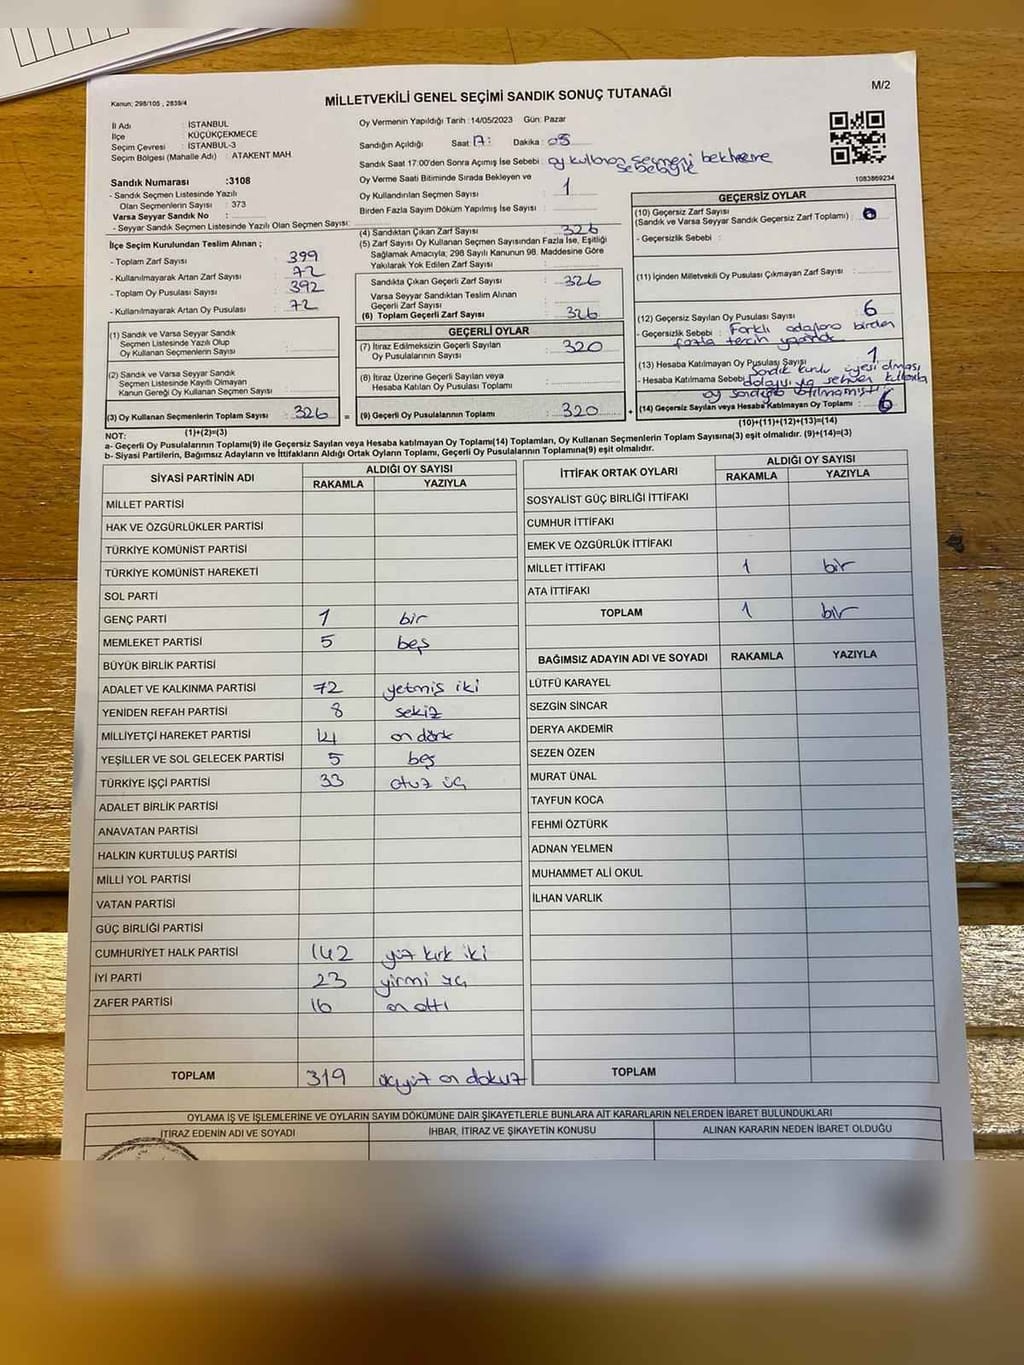 M/2
Kanun; 298/105 , 2839/4
MİLLETVEKİLİ GENEL SEÇİMİ SANDIK SONUÇ TUTANAĞI
İl Adı : İSTANBUL
İlçe : KÜÇÜKÇEKMECE
Seçim Çevresi : İSTANBUL-3
Seçim Bölgesi (Mahalle Adı) : ATAKENT MAH
Sandık Numarası :3108
- Sandık Seçmen Listesinde Yazılı
Olan Seçmenlerin Sayısı : 373
Varsa Seyyar Sandık No :
- Seyyar Sandık Seçmen Listesinde Yazılı Olan Seçmen Sayısı:
Oy Vermenin Yapıldığı Tarih :14/05/2023 Gün: Pazar
Sandığın Açıldığı Saat 17: Dakika : 05
Sandık Saat 17:00'den Sonra Açımış İse Sebebi : oy kullanan seçmeni bekleme
sebebiyle
Oy Verme Saati Bitiminde Sırada Bekleyen ve
Oy Kullandırılan Seçmen Sayısı : 1
Birden Fazla Sayım Döküm Yapılmış İse Sayısı :
1083869234
İlçe Seçim Kurulundan Teslim Alınan ;
- Toplam Zarf Sayısı : 399
- Kullanılmayarak Artan Zarf Sayısı : 72
- Toplam Oy Pusulası Sayısı : 392
- Kullanılmayarak Artan Oy Pusulası : 72
(1) Sandık ve Varsa Seyyar Sandık
Seçmen Listesinde Yazılı Olup
Oy Kullanan Seçmenlerin Sayısı :
(2) Sandık ve Varsa Seyyar Sandık
Seçmen Listesinde Kayıtlı Olmayan
Kanun Gereği Oy Kullanan Seçmen Sayısı :
(3) Oy Kullanan Seçmenlerin Toplam Sayısı : 326 =
(1)+(2)=(3)
(4) Sandıktan Çıkan Zarf Sayısı : 326
(5) Zarf Sayısı Oy Kullanan Seçmen Sayısından Fazla İse, Eşitliği
Sağlamak Amacıyla; 298 Sayılı Kanunun 98. Maddesine Göre
Yakılarak Yok Edilen Zarf Sayısı :
Sandıkta Çıkan Geçerli Zarf Sayısı : 326
Varsa Seyyar Sandıktan Teslim Alınan
Geçerli Zarf Sayısı :
(6) Toplam Geçerli Zarf Sayısı : 326
GEÇERLİ OYLAR
(7) İtiraz Edilmeksizin Geçerli Sayılan
Oy Pusulasının Sayısı : 320
(8) İtiraz Üzerine Geçerli Sayılan veya
Hesaba Katılan Oy Pusulası Toplamı :
(9) Geçerli Oy Pusulalarının Toplamı : 320 +
GEÇERSİZ OYLAR
(10) Geçersiz Zarf Sayısı
(Sandık ve Varsa Seyyar Sandık Geçersiz Zarf Toplamı) : 0
- Geçersizlik Sebebi :
(11) İçinden Milletvekili Oy Pusulası Çıkmayan Zarf Sayısı :
(12) Geçersiz Sayılan Oy Pusulası Sayısı : 6
- Geçersizlik Sebebi : Farklı adaylara birden
fazla tercih
(13) Hesaba Katılmayan Oy Pusulası Sayısı : 1
- Hesaba Katılmama Sebebi : Sandık kurulu üyesi olması
dolayısıyla sehven
oy sandığa atılmamıştır
(14) Geçersiz Sayılan veya Hesaba Katılmayan Oy Toplamı : 6
(10)+(11)+(12)+(13)=(14)
NOT:
a- Geçerli Oy Pusulalarının Toplamı(9) ile Geçersiz Sayılan veya Hesaba katılmayan Oy Toplamı(14) Toplamları, Oy Kullanan Seçmenlerin Toplam Sayısına(3) eşit olmalıdır. (9)+(14)=(3)
b- Siyasi Partilerin, Bağımsız Adayların ve İttifakların Aldığı Ortak Oyların Toplamı, Geçerli Oy Pusulalarının Toplamına(9) eşit olmalıdır.
SİYASİ PARTİNİN ADI ALDIĞI OY SAYISI
RAKAMLA YAZIYLA
MİLLET PARTİSİ
HAK VE ÖZGÜRLÜKLER PARTİSİ
TÜRKİYE KOMÜNİST PARTİSİ
TÜRKİYE KOMÜNİST HAREKETİ
SOL PARTİ
GENÇ PARTİ 1 bir
MEMLEKET PARTİSİ 5 beş
BÜYÜK BİRLİK PARTİSİ
ADALET VE KALKINMA PARTİSİ 72 yetmiş iki
YENİDEN REFAH PARTİSİ 8 sekiz
MİLLİYETÇİ HAREKET PARTİSİ 14 on dört
YEŞİLLER VE SOL GELECEK PARTİSİ 5 beş
TÜRKİYE İŞÇİ PARTİSİ 33 otuz üç
ADALET BİRLİK PARTİSİ
ANAVATAN PARTİSİ
HALKIN KURTULUŞ PARTİSİ
MİLLİ YOL PARTİSİ
VATAN PARTİSİ
GÜÇ BİRLİĞİ PARTİSİ
CUMHURİYET HALK PARTİSİ 142 yüz kırk iki
İYİ PARTİ 23 yirmi üç
ZAFER PARTİSİ 16 on altı
TOPLAM 319 üçyüz on dokuz
İTTİFAK ORTAK OYLARI ALDIĞI OY SAYISI
RAKAMLA YAZIYLA
SOSYALİST GÜÇ BİRLİĞİ İTTİFAKI
CUMHUR İTTİFAKI
EMEK VE ÖZGÜRLÜK İTTİFAKI
MİLLET İTTİFAKI 1 bir
ATA İTTİFAKI
TOPLAM 1 bir
BAĞIMSIZ ADAYIN ADI VE SOYADI RAKAMLA YAZIYLA
LÜTFÜ KARAYEL
SEZGİN SİNCAR
DERYA AKDEMİR
SEZEN ÖZEN
MURAT ÜNAL
TAYFUN KOCA
FEHMİ ÖZTÜRK
ADNAN YELMEN
MUHAMMET ALİ OKUL
İLHAN VARLIK
TOPLAM
OYLAMA İŞ VE İŞLEMLERİNE VE OYLARIN SAYIM DÖKÜMÜNE DAİR ŞİKAYETLERLE BUNLARA AİT KARARLARIN NELERDEN İBARET BULUNDUKLARI
İTİRAZ EDENİN ADI VE SOYADI İHBAR, İTİRAZ VE ŞİKAYETİN KONUSU ALINAN KARARIN NEDEN İBARET OLDUĞU